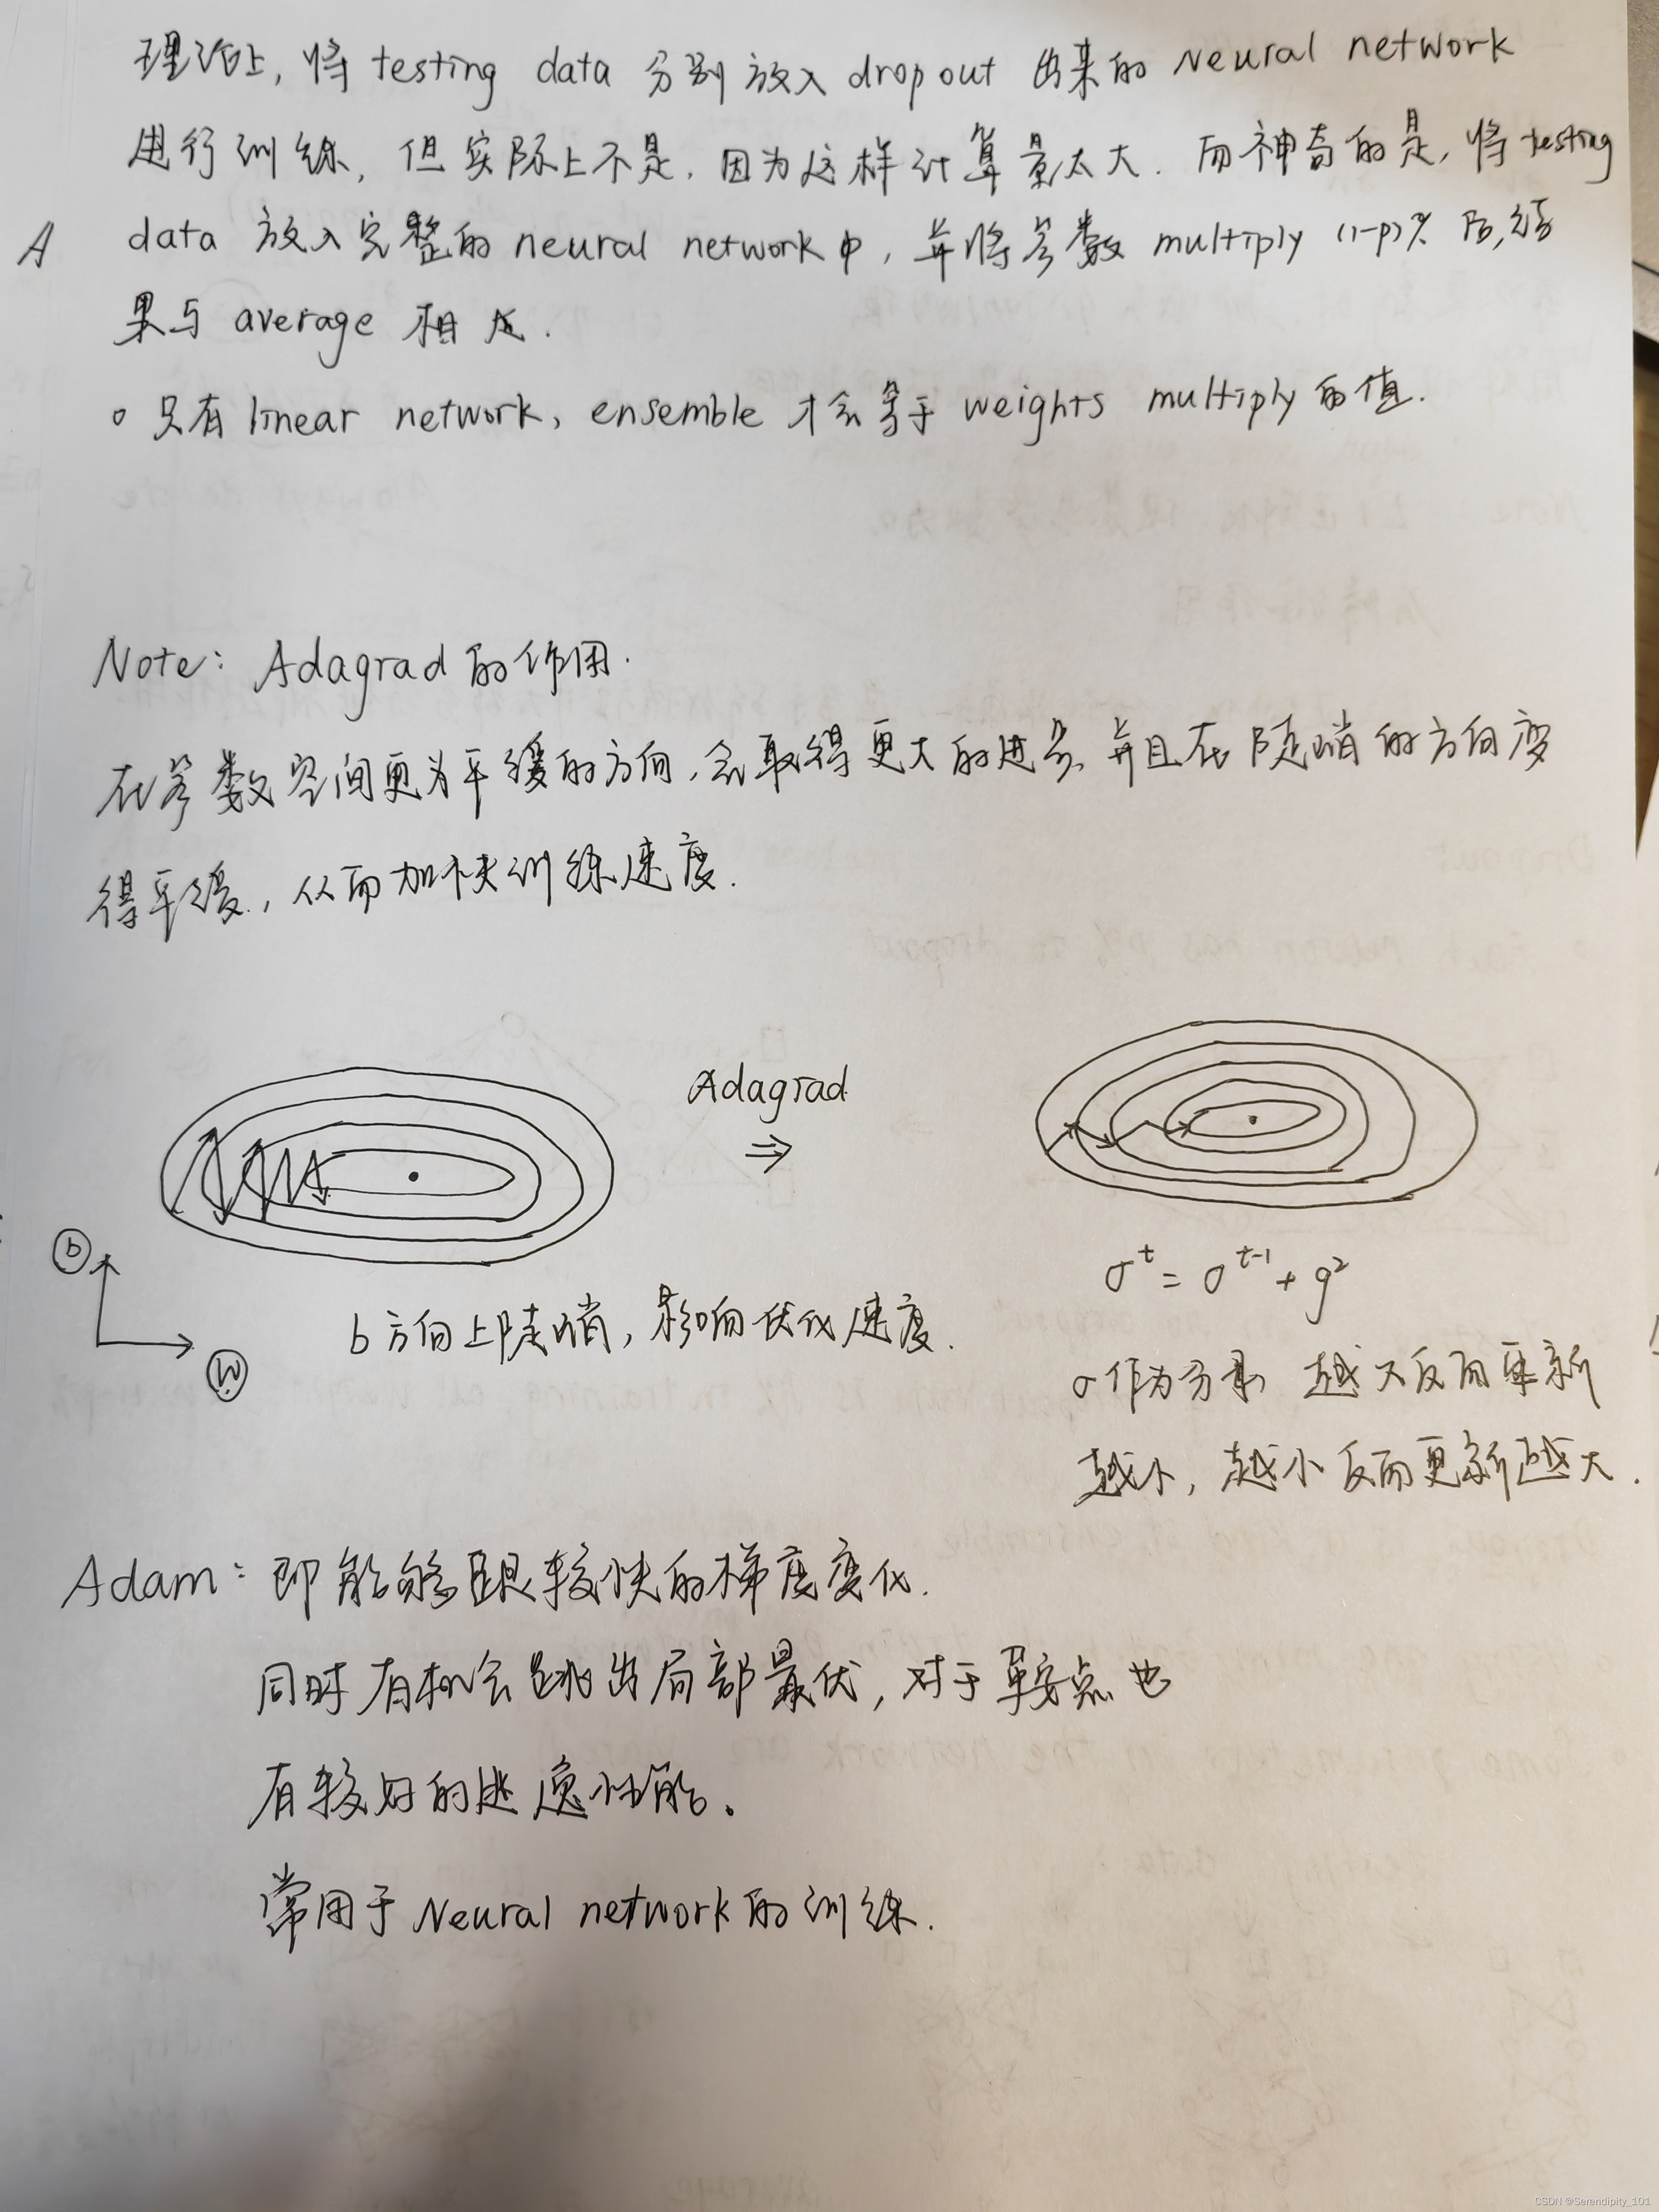 理论上,将 testing data 分别放入 dropout 出来的 Neural network
进行训练,但实际上不是,因为这样计算量太大.而神奇的是,将testing
A data 放入完整的 neural network中,并将参数 multiply (1-p)% 后,结
果与 average 相近.
o 只有 linear network, ensemble 才会等于 weights multiply 的值.
Note: Adagrad 的作用.
在参数空间更为平缓的方向,会取得更大的进步,并且在陡峭的方向变
得平缓,从而加快训练速度.
Adagrad
⇒
b
w
b方向上陡峭,影响优化速度.
σ^t = σ^{t-1} + g²
σ作为分母,越大反而更新
越小,越小反而更新越大.
Adam: 即能够跟较快的梯度变化.
同时有机会跳出局部最优,对于鞍点也
有较好的逃逸性能。
常用于 Neural network 的训练.
CSDN @Serendipity_101